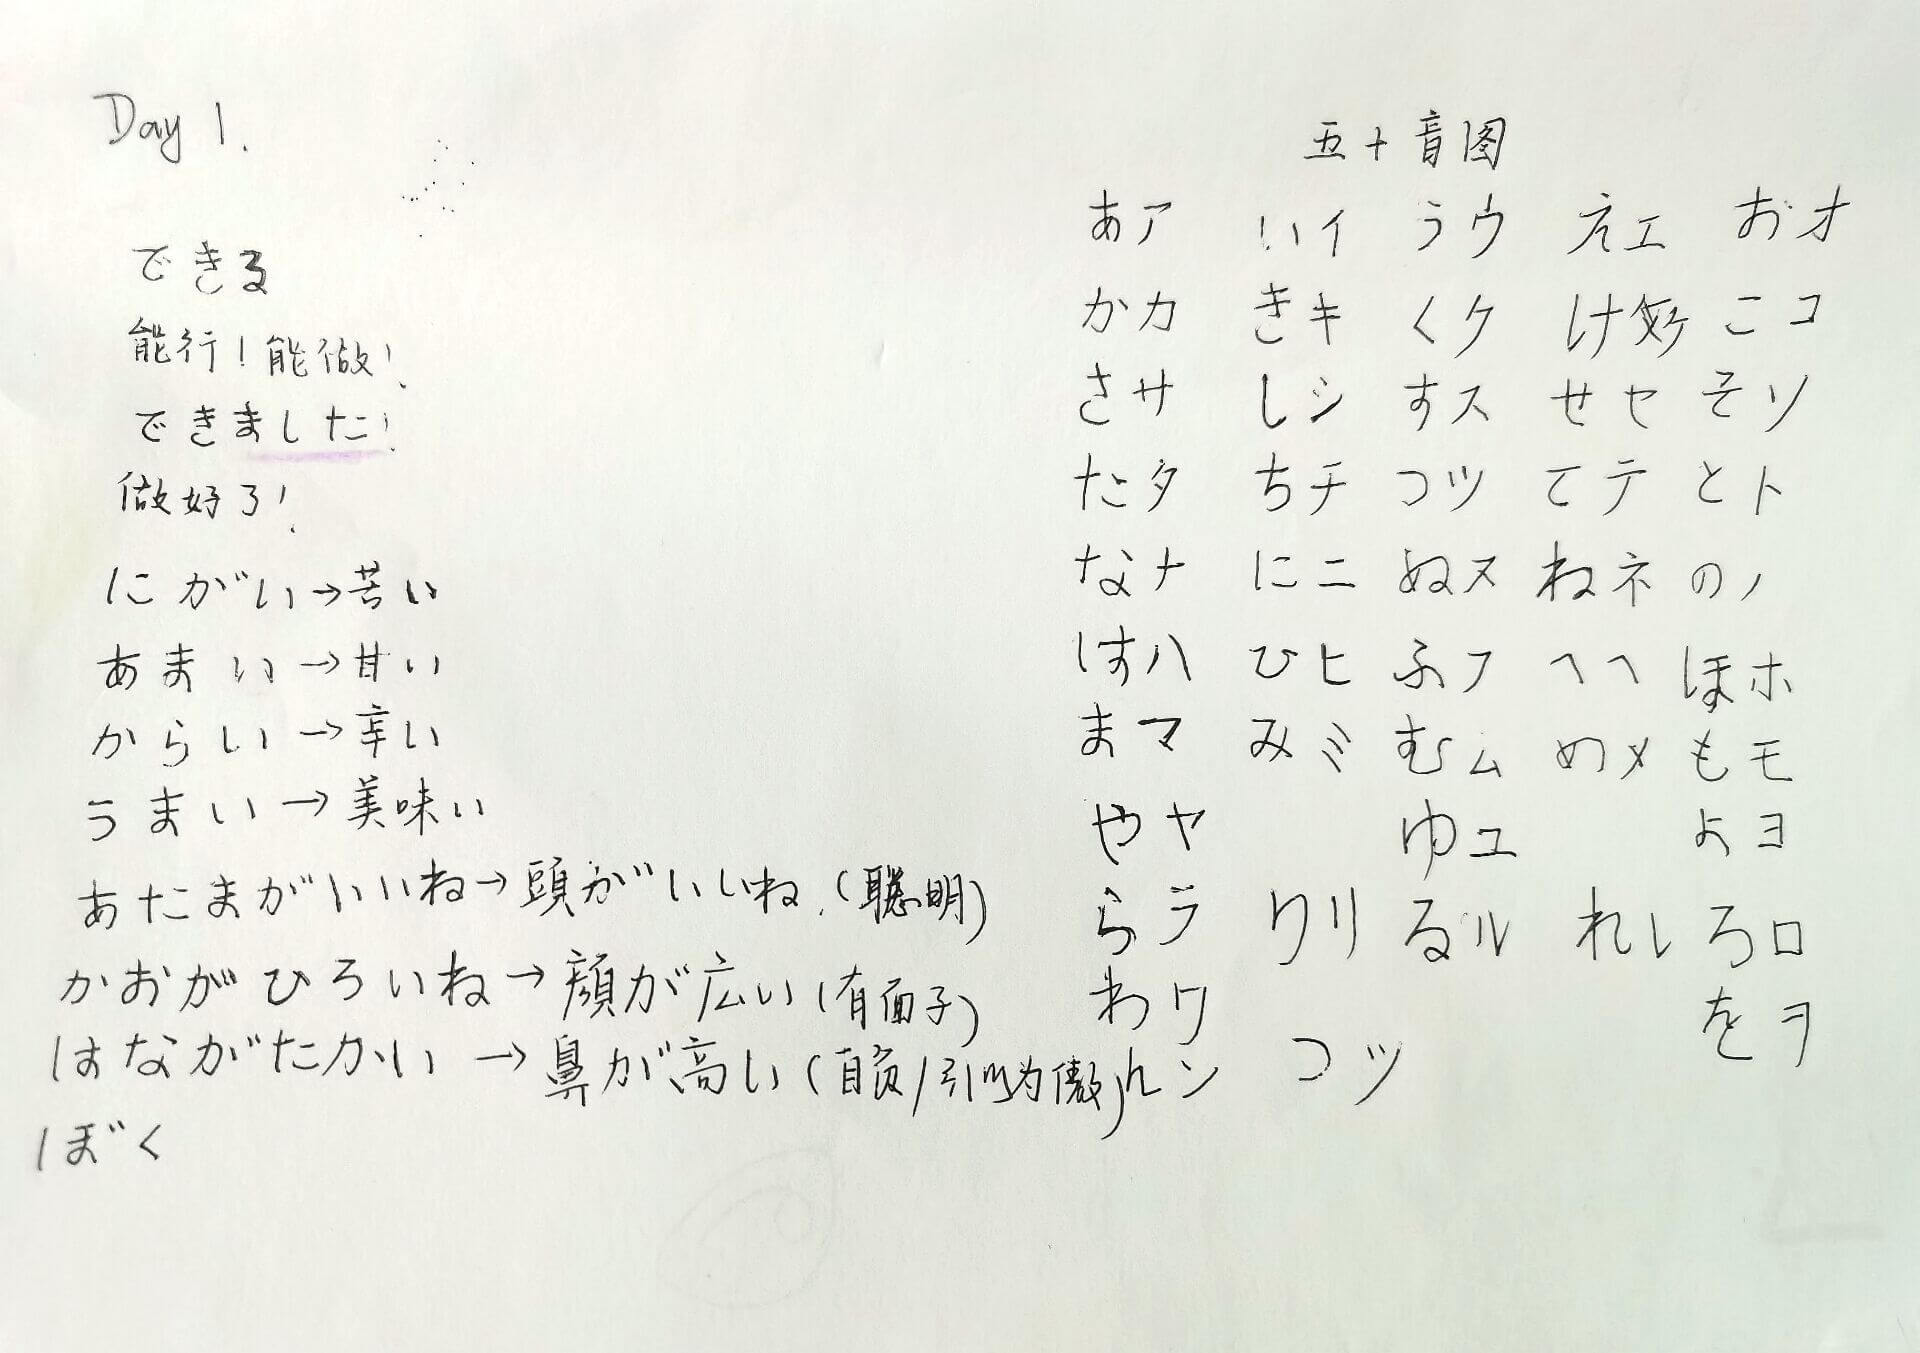 Day 1.
できる
能行!能做!
できました!
做好了!
にがい→苦い
あまい→甘い
からい→辛い
うまい→美味い
あたまがいいね→頭がいいね.(聪明)
かおがひろいね→顔が広い(有面子)
はながたかい→鼻が高い(自负/引以为傲)
ぼく
五十音图
あア いイ うウ えエ おオ
かカ きキ くク けケ こコ
さサ しシ すス せセ そソ
たタ ちチ つツ てテ とト
なナ にニ ぬヌ ねネ のノ
はハ ひヒ ふフ へヘ ほホ
まマ みミ むム めメ もモ
やヤ ゆユ よヨ
らラ りリ るル れレ ろロ
わワ をヲ
んン つツ